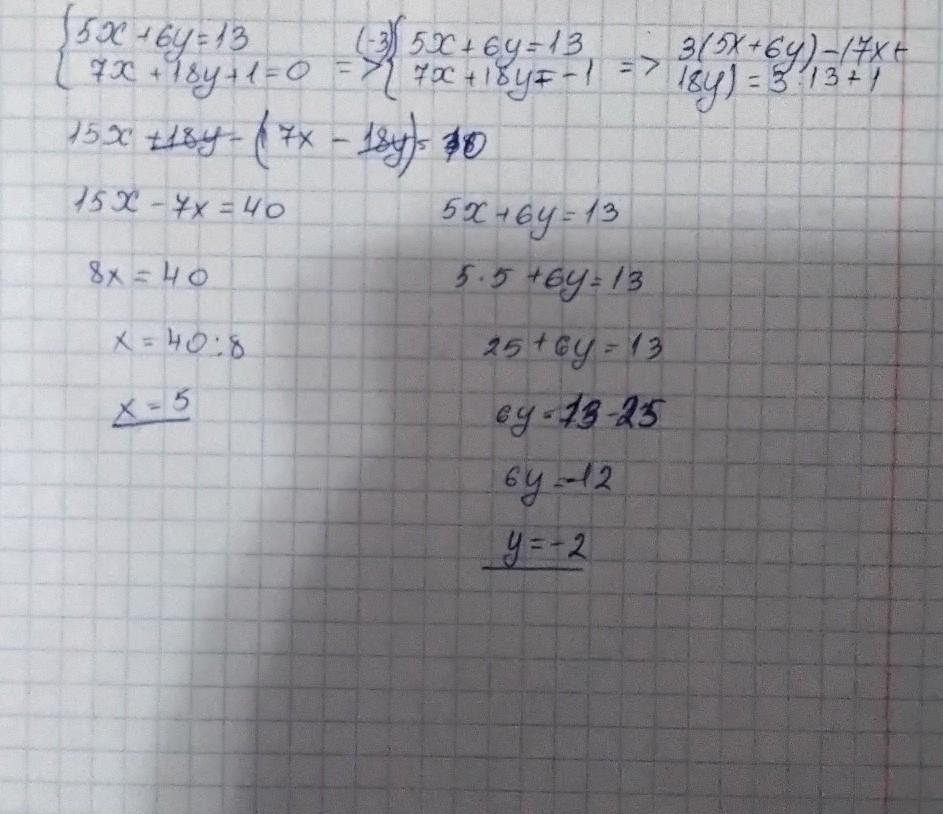 {5x + 6y = 13
{7x + 18y + 1 = 0 =>
(-3){5x + 6y = 13
{7x + 18y = -1 =>
3(5x + 6y) - (7x +
18y) = 3 · 13 + 1
15x + 18y - (7x - 18y) =
15x - 7x = 40
8x = 40
x = 40 : 8
x = 5
5x + 6y = 13
5 · 5 + 6y = 13
25 + 6y = 13
6y = 13 - 25
6y = -12
y = -2